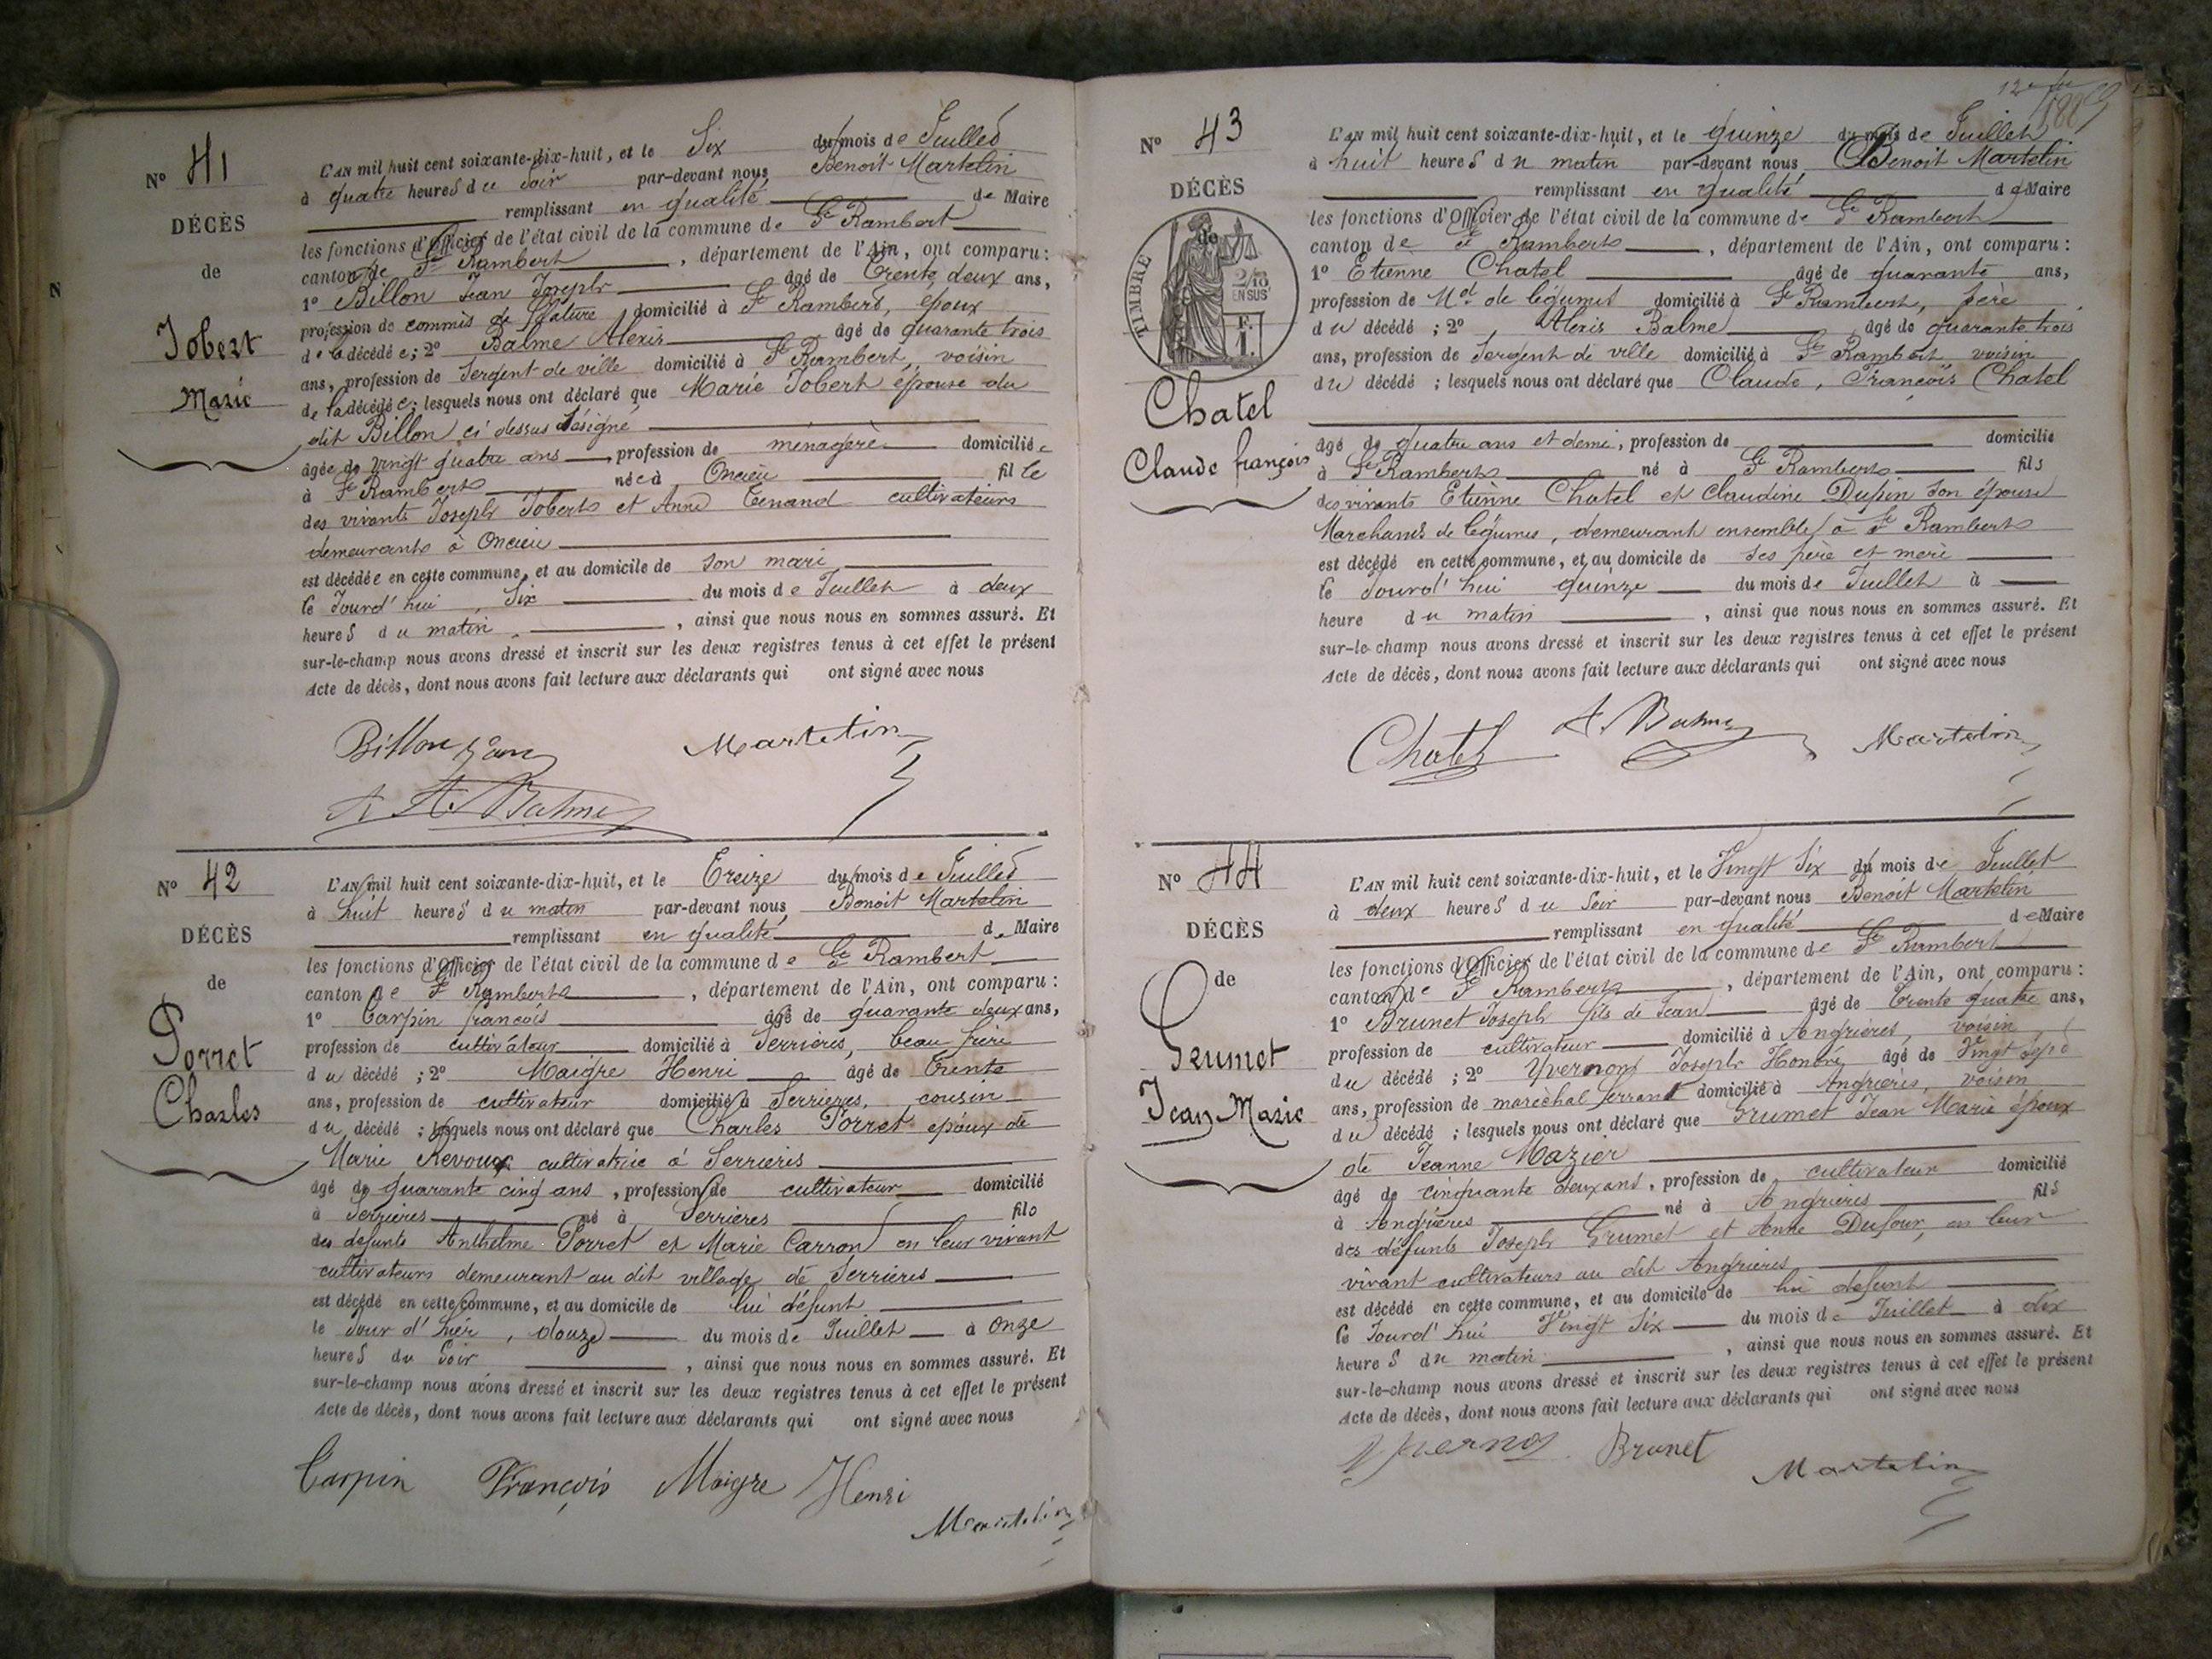 N° 41
DÉCÈS
de
Jobert
Marie
L'AN mil huit cent soixante-dix-huit, et le Six du mois de Juillet
à quatre heures du Soir par-devant nous Benoit Martelin
remplissant en qualité de Maire
les fonctions d'Officier de l'état civil de la commune de St Rambert
canton de St Rambert, département de l'Ain, ont comparu :
1° Billon Jean Joseph âgé de Trente deux ans,
profession de commis de filature domicilié à St Rambert, époux
de la décédée ; 2° Balme Alexis âgé de quarante trois
ans, profession de Sergent de ville domicilié à St Rambert, voisin
de la décédée ; lesquels nous ont déclaré que Marie Jobert épouse du
dit Billon ci dessus désigné
âgée de vingt quatre ans, profession de ménagère domiciliée
à St Rambert née à Oncieu fille
des vivants Joseph Jobert et Anne Tenand cultivateurs
demeurants à Oncieu
est décédée en cette commune, et au domicile de son mari
le Jourd'hui, Six du mois de Juillet à deux
heures du matin, ainsi que nous nous en sommes assuré. Et
sur-le-champ nous avons dressé et inscrit sur les deux registres tenus à cet effet le présent
Acte de décès, dont nous avons fait lecture aux déclarants qui ont signé avec nous
Billon Jean Martelin
A. Balme
N° 42
DÉCÈS
de
Porret
Charles
L'AN mil huit cent soixante-dix-huit, et le Treize du mois de Juillet
à huit heures du matin par-devant nous Benoit Martelin
remplissant en qualité de Maire
les fonctions d'Officier de l'état civil de la commune de St Rambert
canton de St Rambert, département de l'Ain, ont comparu :
1° Carpin françois âgé de quarante deux ans,
profession de cultivateur domicilié à Serrières, beau frère
du décédé ; 2° Maigre Henri âgé de Trente
ans, profession de cultivateur domicilié à Serrières, cousin
du décédé ; lesquels nous ont déclaré que Charles Porret époux de
Marie Revoux cultivatrice à Serrières
âgé de quarante cinq ans, profession de cultivateur domicilié
à Serrières né à Serrières fils
des défunts Anthelme Porret et Marie Carron en leur vivant
cultivateurs demeurant au dit village de Serrières
est décédé en cette commune, et au domicile de lui défunt
le Jour d'hier, douze du mois de Juillet à onze
heures du Soir, ainsi que nous nous en sommes assuré. Et
sur-le-champ nous avons dressé et inscrit sur les deux registres tenus à cet effet le présent
Acte de décès, dont nous avons fait lecture aux déclarants qui ont signé avec nous
Carpin François Maigre Henri
Martelin
N° 43
DÉCÈS
de
TIMBRE
2/10
EN SUS
F.
1.
Chatel
Claude françois
L'AN mil huit cent soixante-dix-huit, et le quinze du mois de Juillet
à huit heures du matin par-devant nous Benoit Martelin
remplissant en qualité de Maire
les fonctions d'Officier de l'état civil de la commune de St Rambert
canton de St Rambert, département de l'Ain, ont comparu :
1° Etienne Chatel âgé de quarante ans,
profession de Md de légumes domicilié à St Rambert, père
du décédé ; 2° Alexis Balme âgé de quarante trois
ans, profession de Sergent de ville domicilié à St Rambert voisin
du décédé ; lesquels nous ont déclaré que Claude, François Chatel
âgé de quatre ans et demi, profession de domicilié
à St Rambert né à St Rambert fils
des vivants Etienne Chatel et Claudine Dupin son épouse
Marchands de légumes, demeurant ensemble à St Rambert
est décédé en cette commune, et au domicile de ses père et mère
le Jourd'hui quinze du mois de Juillet à
heure du matin, ainsi que nous nous en sommes assuré. Et
sur-le-champ nous avons dressé et inscrit sur les deux registres tenus à cet effet le présent
Acte de décès, dont nous avons fait lecture aux déclarants qui ont signé avec nous
Chatel A. Balme Martelin
N° 44
DÉCÈS
de
Grumet
Jean Marie
L'AN mil huit cent soixante-dix-huit, et le Vingt Six du mois de Juillet
à deux heures du Soir par-devant nous Benoit Martelin
remplissant en qualité de Maire
les fonctions d'Officier de l'état civil de la commune de St Rambert
canton de St Rambert, département de l'Ain, ont comparu :
1° Brunet Joseph fils de Jean âgé de Trente quatre ans,
profession de cultivateur domicilié à Angrières, voisin
du décédé ; 2° Yvernon Joseph Honoré âgé de Vingt sept
ans, profession de maréchal ferrant domicilié à Angrières, voisin
du décédé ; lesquels nous ont déclaré que Grumet Jean Marie époux
de Jeanne Mazier
âgé de cinquante deux ans, profession de cultivateur domicilié
à Angrières né à Angrières fils
des défunts Joseph Grumet et Anne Dufour, en leur
vivant cultivateurs au dit Angrières
est décédé en cette commune, et au domicile de lui défunt
le Jourd'hui Vingt Six du mois de Juillet à dix
heures du matin, ainsi que nous nous en sommes assuré. Et
sur-le-champ nous avons dressé et inscrit sur les deux registres tenus à cet effet le présent
Acte de décès, dont nous avons fait lecture aux déclarants qui ont signé avec nous
Yvernoz Brunet
Martelin